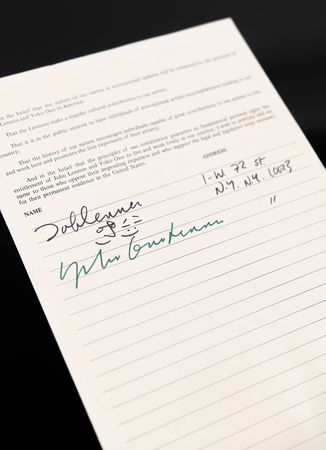 is the belief that the stature of our nation in
Lennon and Yoko Ono in America.
That the Lennons make a singular cultural contribution to our nation.
That it is in the public interest to have individuals of international artistic accomplishment residing in our
country;
That the history of our nation encourages individuals capable of great contributions to our nation to live
and work here and promotes the free expression of their artistry;
And in the belief that the principles of our constitution guarantee as fundamental personal rights the
entitlement of John Lennon and Yoko Ono to live and work freely in our country, I wish to publicly add my
name to those who oppose their impending expulsion and who support the legal and legislative steps necessary
for their permanent residence in the United States.
NAME ADDRESS
John Lennon 1-W 72 st
N.Y. N.Y. 10023
Yoko Ono Lennon "